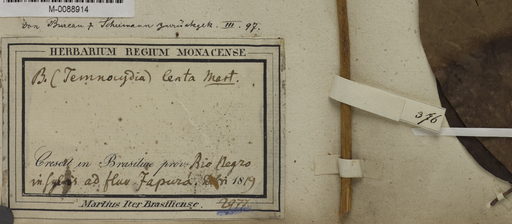 M-0088914
Von Bureau & Schumann zurückgek. III. 97.
HERBARIUM REGIUM MONACENSE
B. (Temnocydia) lenta Mart.
Crescit in Brasiliae prov. Rio Negro
in sylvis ad fluv. Japurá. 1819
Martius Iter Brasiliense. 2977
376